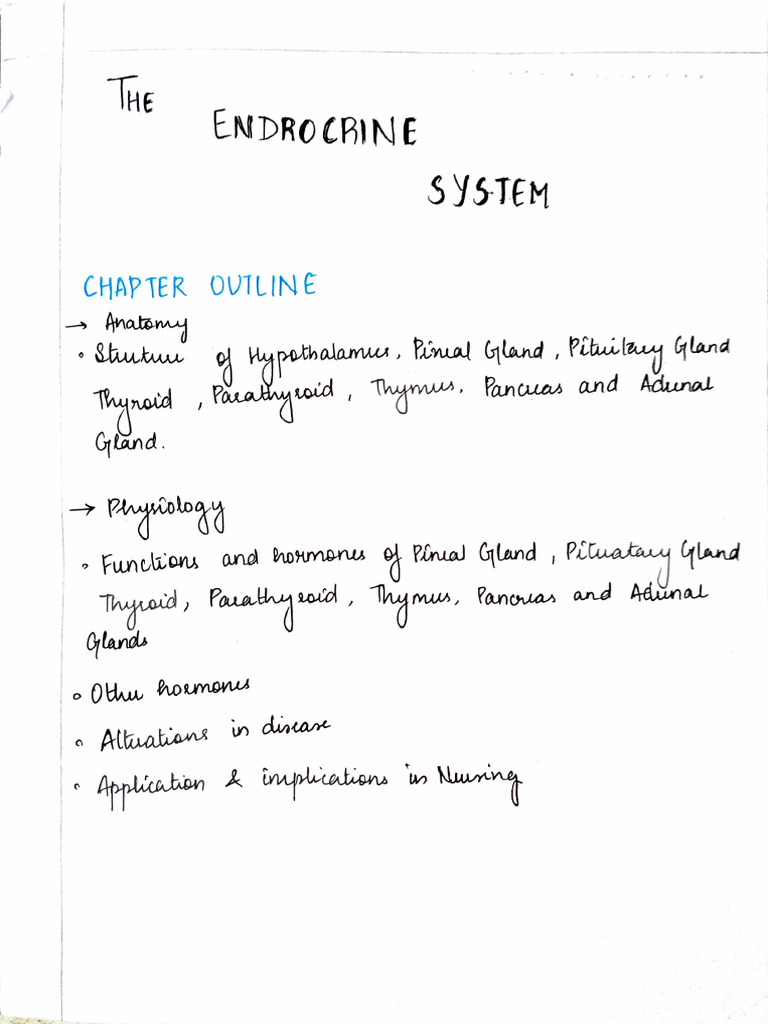 THE
ENDROCRINE
SYSTEM
CHAPTER OUTLINE
→ Anatomy
• Struture of Hypothalamus, Pineal Gland, Pituitary Gland
Thyroid, Parathyroid, Thymus, Pancreas and Adrenal
Gland.
→ Physiology
• Functions and hormones of Pineal Gland, Pituatary Gland
Thyroid, Parathyroid, Thymus, Pancreas and Adrenal
Glands
• Other hormones
• Alterations in disease
• Application & implications in Nursing